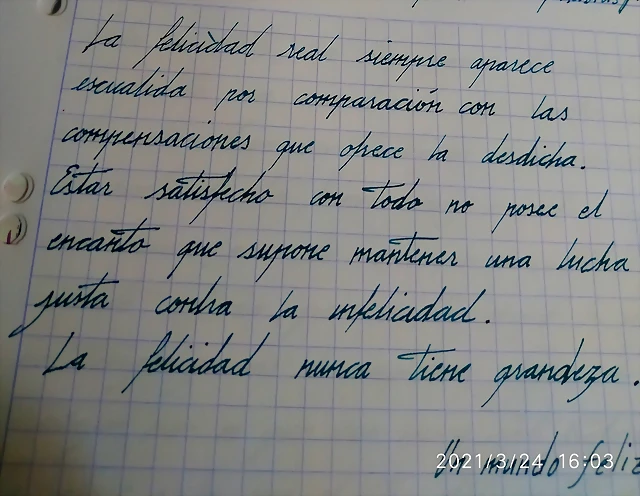 La felicidad real siempre aparece
escualida por comparación con las
compensaciones que ofrece la desdicha.
Estar satisfecho con todo no posee el
encanto que supone mantener una lucha
justa contra la infelicidad.
La felicidad nunca tiene grandeza.
Un mundo feliz
2021/3/24 16:03